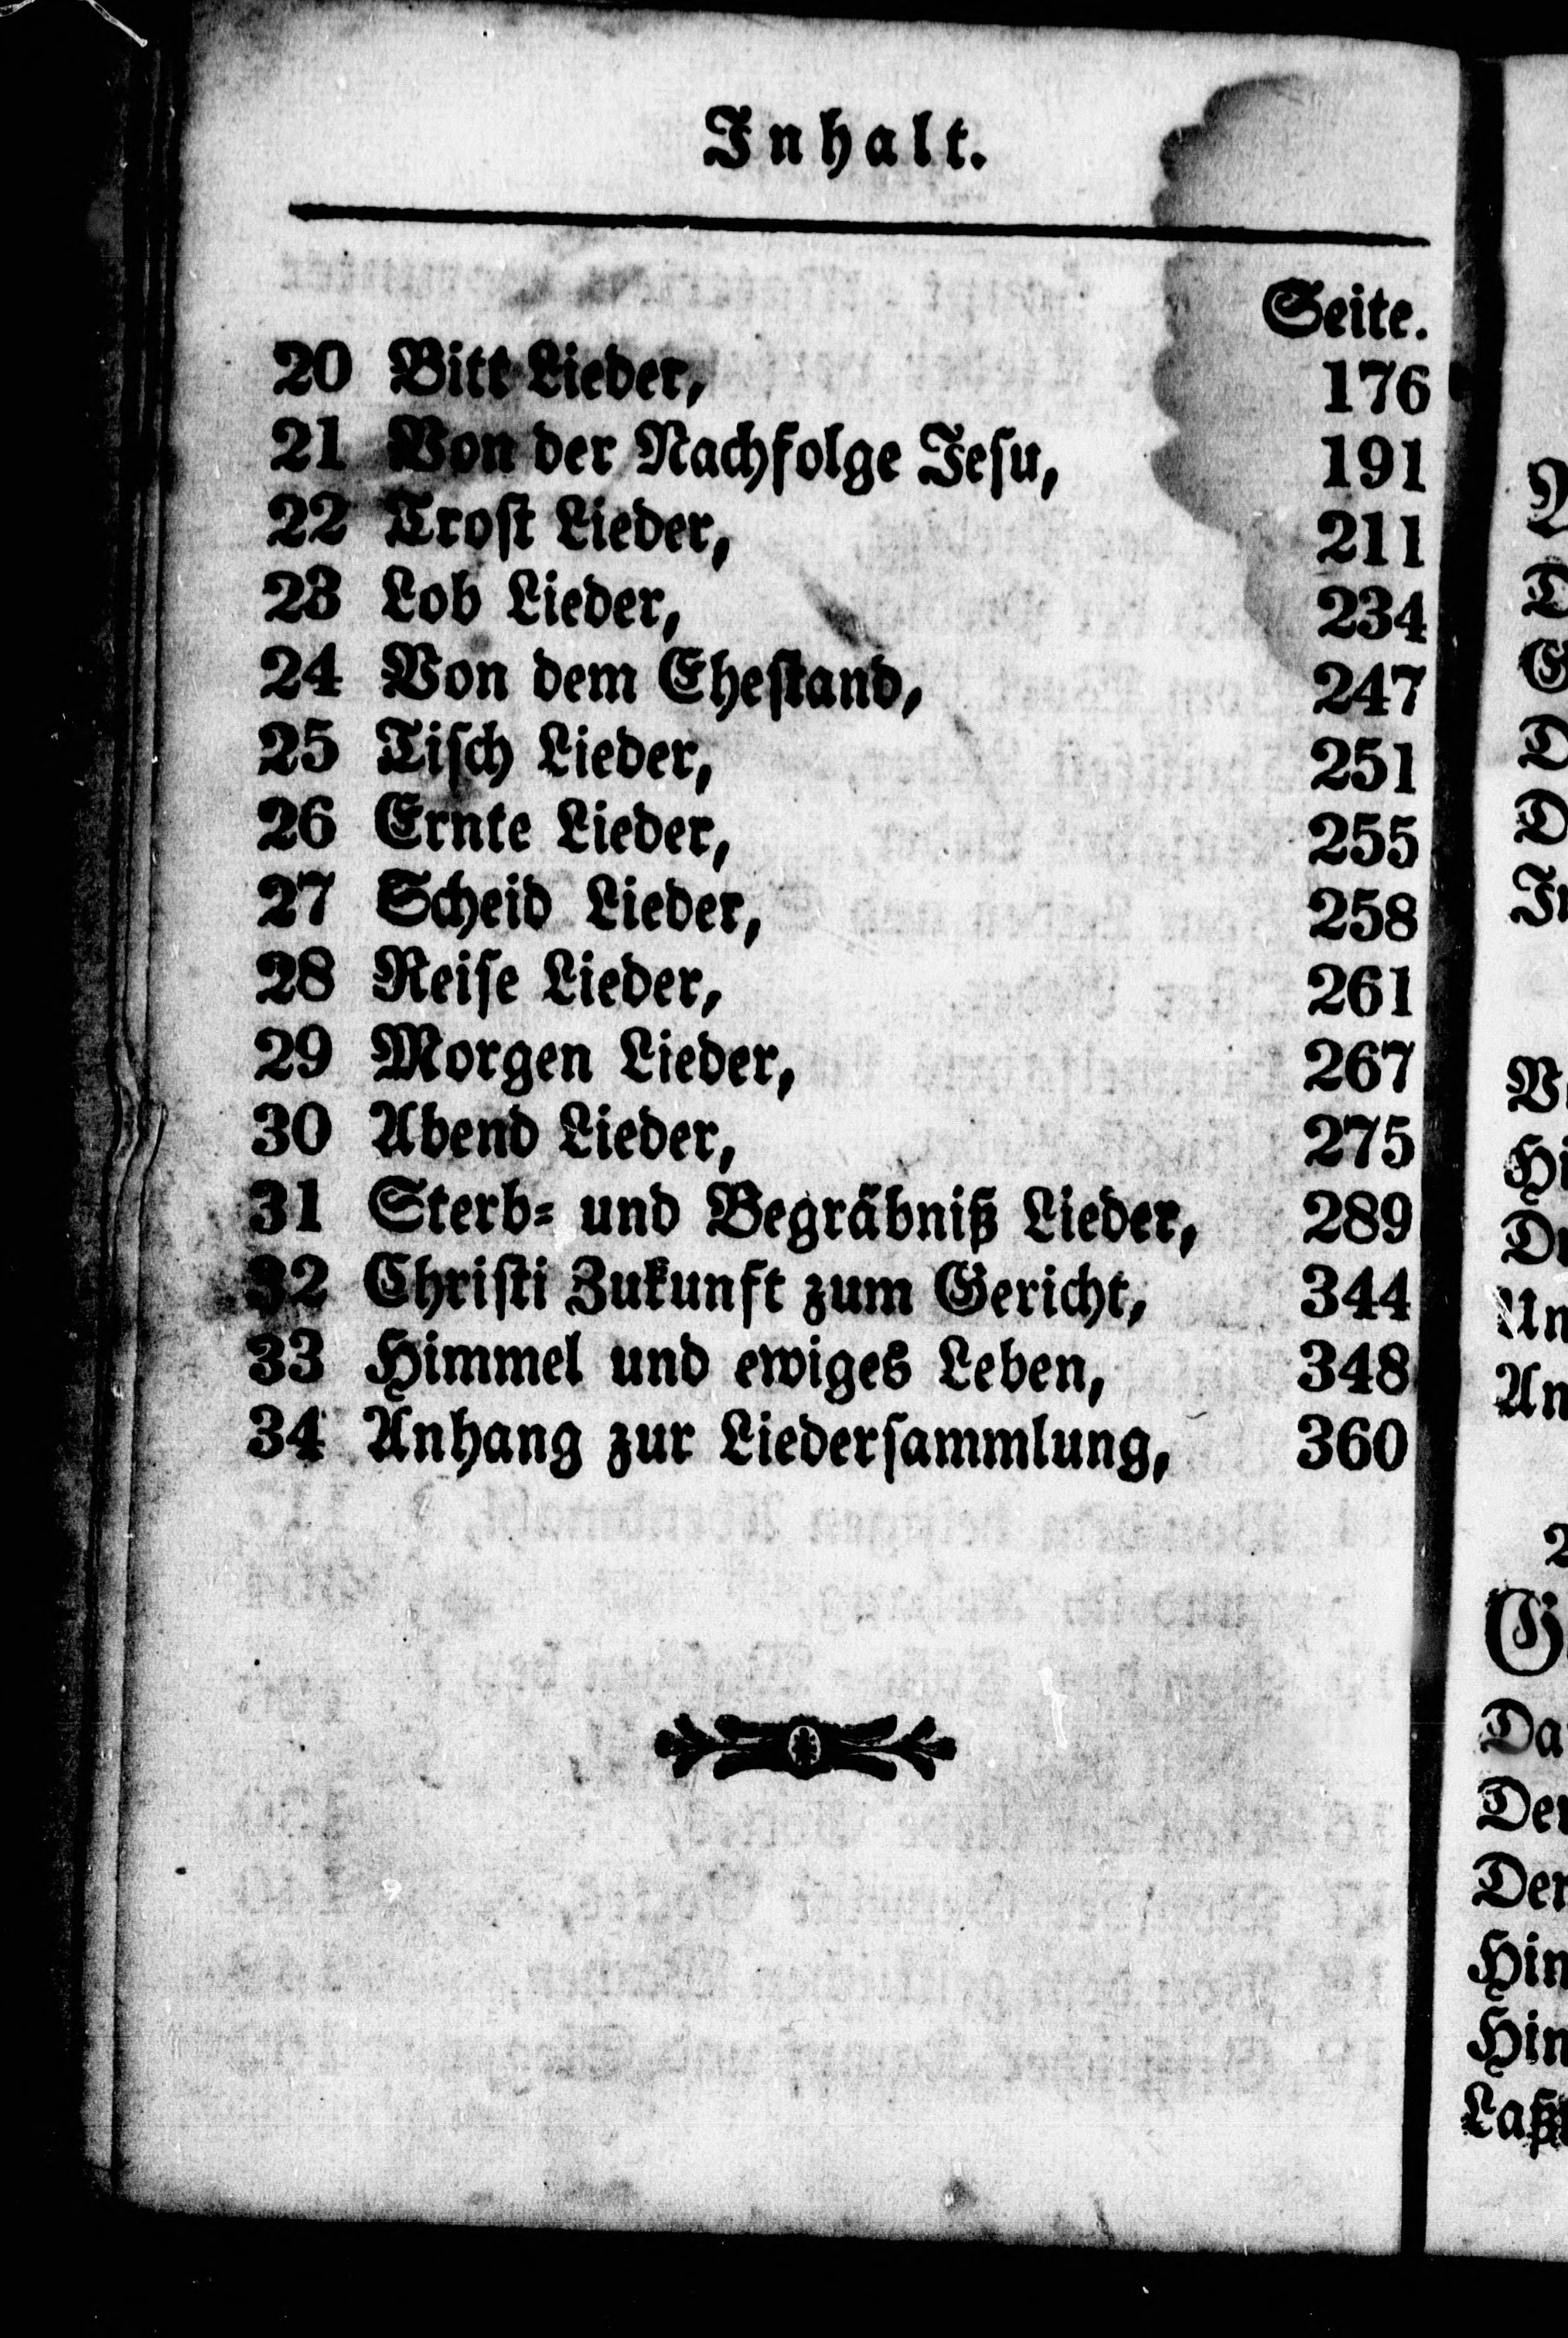 Inhalt.
Seite.
20 Bitt Lieder, 176
21 Von der Nachfolge Jesu, 191
22 Trost Lieder, 211
23 Lob Lieder, 234
24 Von dem Ehestand, 247
25 Tisch Lieder, 251
26 Ernte Lieder, 255
27 Scheid Lieder, 258
28 Reise Lieder, 261
29 Morgen Lieder, 267
30 Abend Lieder, 275
31 Sterb= und Begräbniß Lieder, 289
32 Christi Zukunft zum Gericht, 344
33 Himmel und ewiges Leben, 348
34 Anhang zur Liedersammlung, 360